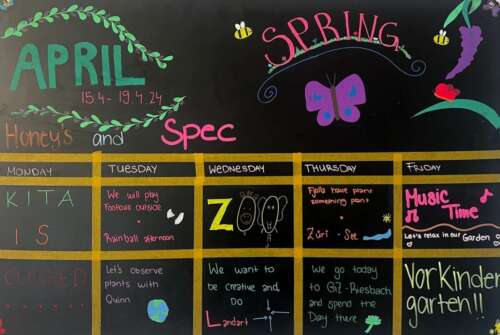 APRIL
15.4 - 19.4.24
SPRING
Honey's and Spec
MONDAY
TUESDAY
WEDNESDAY
THURSDAY
FRIDAY
KITA
IS
CLOSED
We will play
football outside
Rainball afternoon
Let's observe
plants with
Quinn
ZOO
We want to
be creative and
DO
Landart
something plant
Züri - See
We go today
to GZ-Riesbach
and spend the
Day there
Music
Time
Let's relax in our Garden
Vorkinder
garten!!